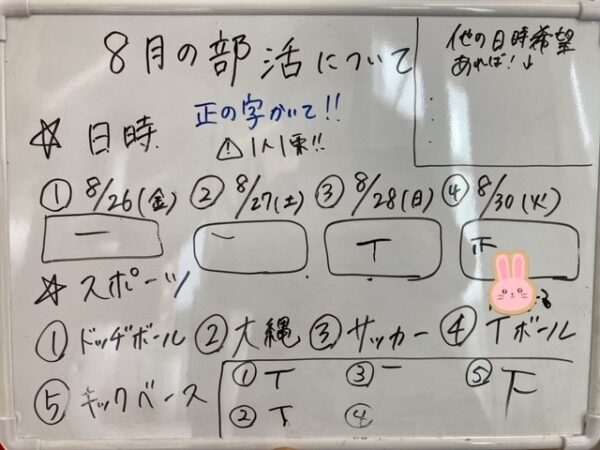 8月の部活について
他の日時希望
あれば！↓
正の字かいて!!
☆ 日時
⚠ 1人1票!!
① 8/26(金) ② 8/27(土) ③ 8/28(日) ④ 8/30(火)
一 一 丅 下
☆ スポーツ
① ドッヂボール ② 大縄 ③ サッカー ④ Tボール
⑤ キックベース
① 丅 ③ 一 ⑤ 下
② 下 ④